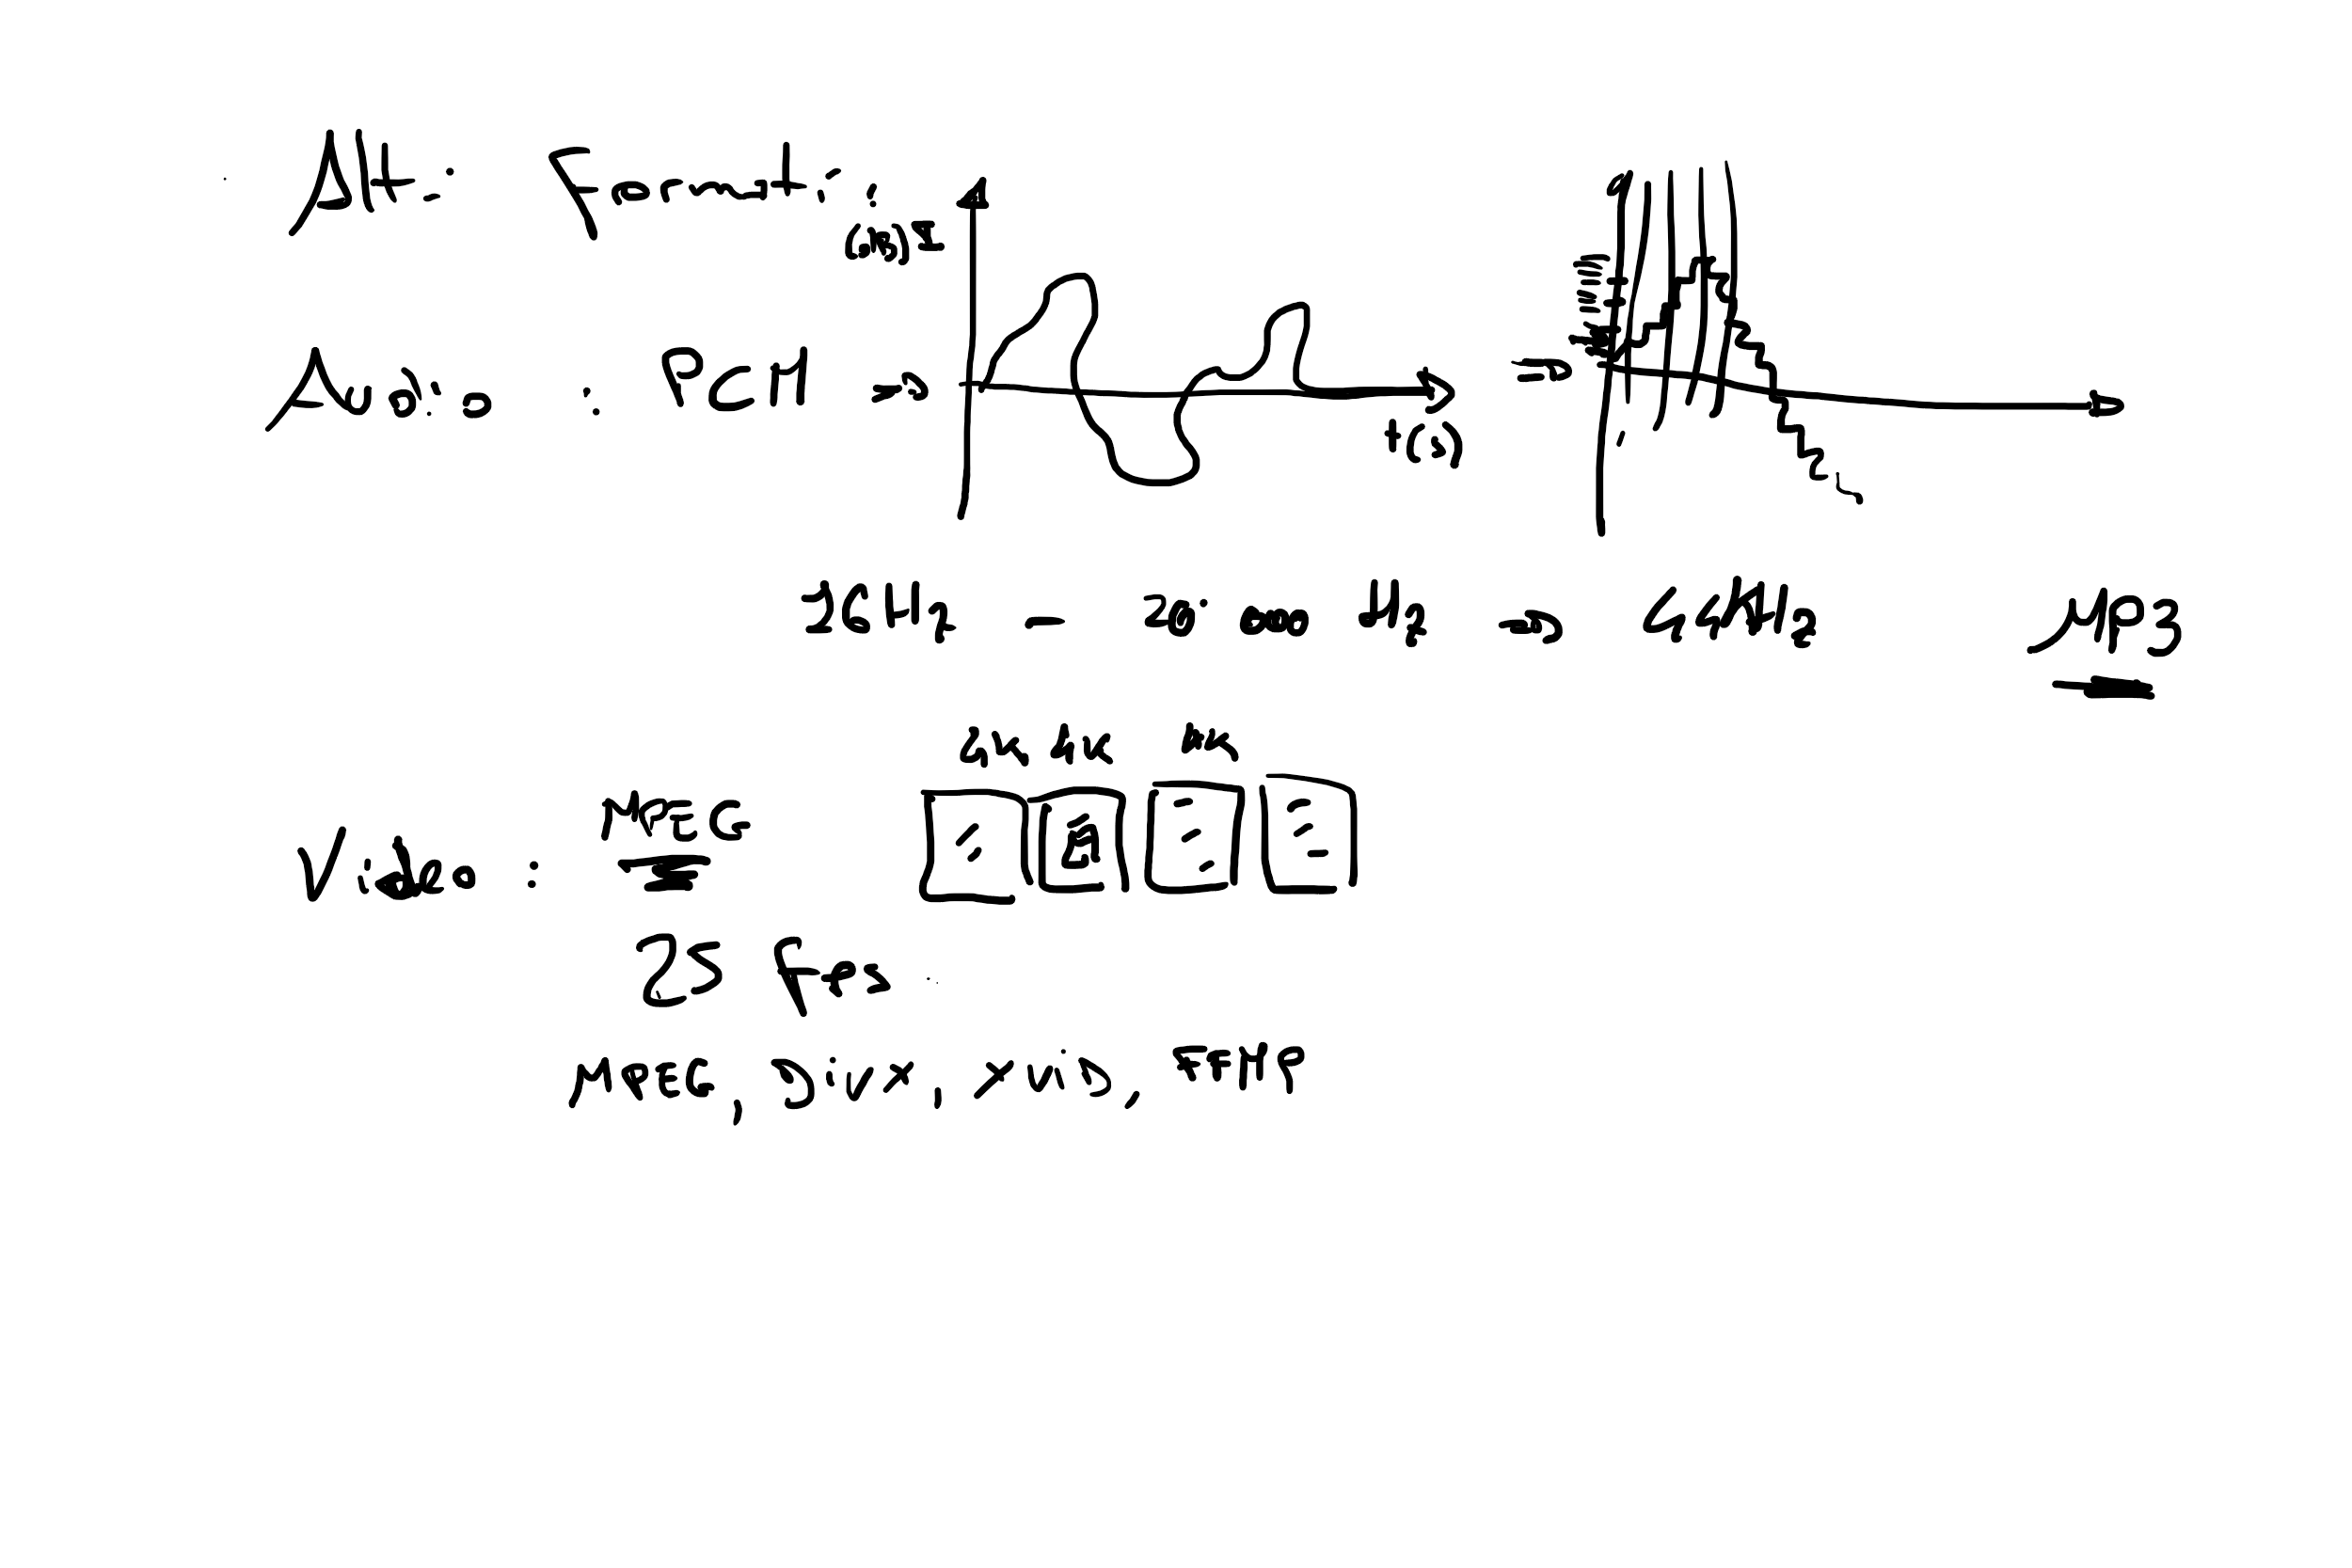 Alt: Formati:
Audio: PCM =>
t(s)
16Hz - 20 000 Hz => 44kHz MP3
4K 4K 4K
Video: MPEG
25 fps
MPEG, Divx, xvid, FFMP